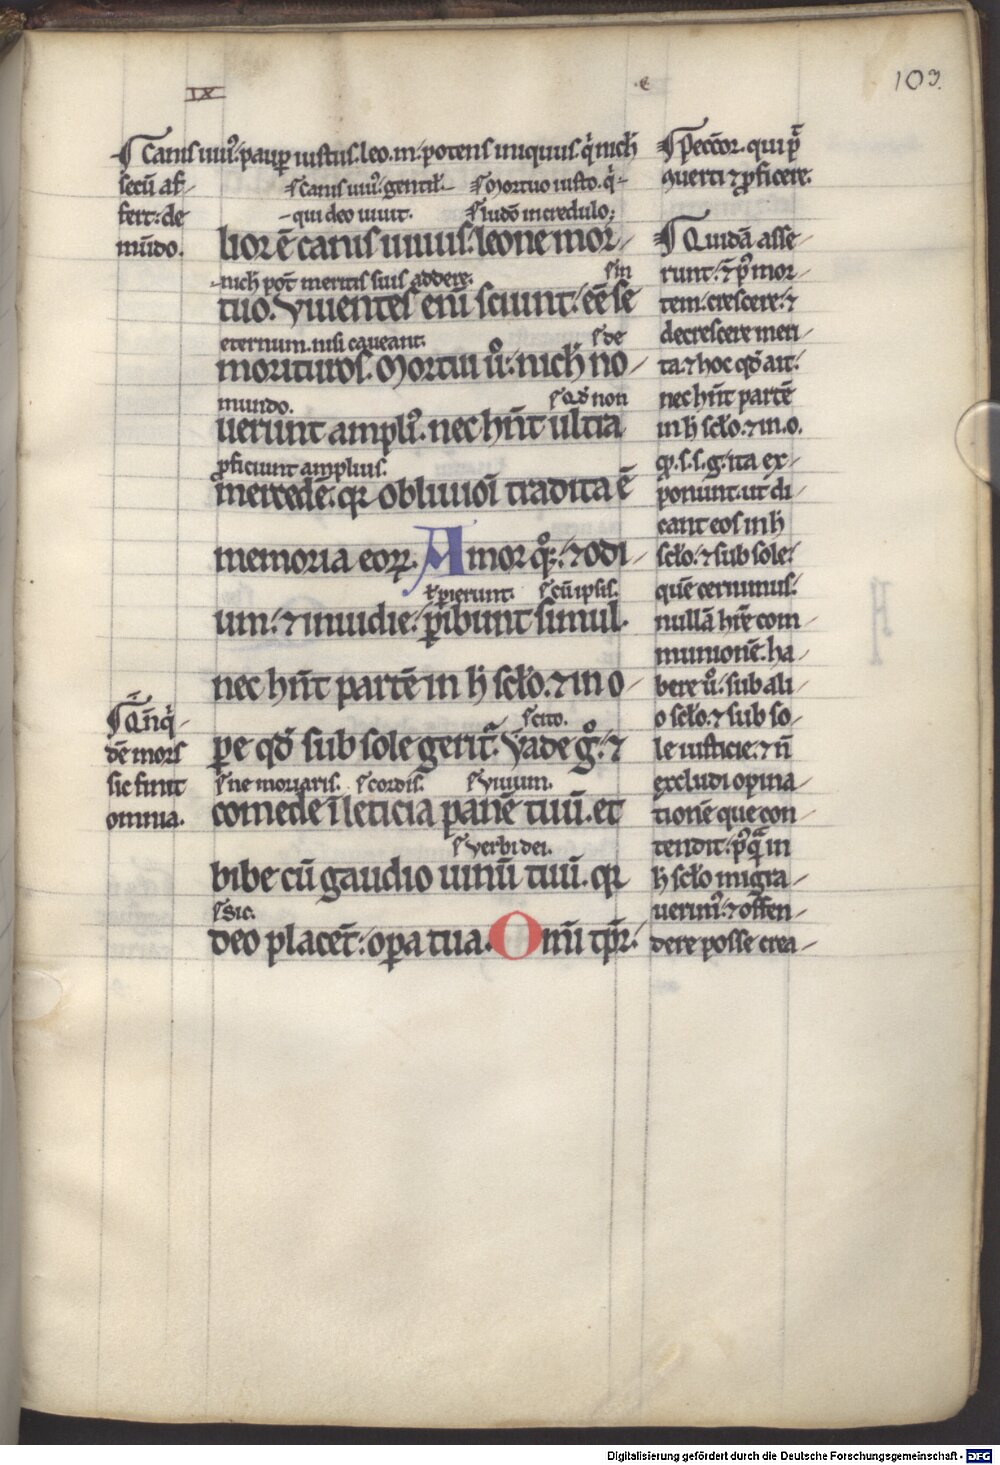 IX
·e·
103.
Canis uiuꝰ. paup̄ iustus. leo. m. potens iniquus. q̇ nich̄
secū af-
fert de
mūdo.
Canis uiuꝰ. gentil̄.
Mortuo iusto. q̇
qui deo uiuit.
iudō incredulo;
lior ē canis uiuus. leone mor-
nich̄ pot̄ meritis suis addere.
in
tuo. Viuentes enī sciunt. eē se
eternum. nisi caueant.
de
morituros. Mortui ů. nich̄ no-
mundo.
Qđ non
uerunt amplıꝰ. nec hn̄t ultra
ꝓficiunt amplius.
mercedē. qꝛ obliuioī tradita ē
memoria eoꝝ. Amor qͦꝫ. ⁊ odi-
ꝑierunt.
cū ipsis.
um. ⁊ inuidie. ꝑibunt simul.
nec hn̄t partē in h̄ scl̄o. ⁊ in o-
cito.
ꝑe qđ sub sole gerit᷑. Vade gͦ. ⁊
ne moriaris.
cordis.
Viuum.
comede ī leticia panē tuū. et
Verbi dei.
bibe cū gaudio uinū tuū. qꝛ
Sic.
deo placēt. oꝑa tua. Omī tꝑr.
Qn̄ q̇-
dē mors
sic sunt
omnia.
Peccōr. qui p̄
uerti ⁊ ꝓficere.
Quidā asse-
runt. ⁊ pꝰ mor-
tem. crescere. ⁊
decrescere meri-
ta. ⁊ hoc qđ ait.
nec hn̄t partē
in h̄ scl̄o. ⁊ in. o.
qͥ. s. s. g. ita ex-
ponunt. ut di-
cant eos in h̄
scl̄o. ⁊ sub sole.
quē cernimus.
nullā hr̄e com-
munionē. ha-
bere ů. sub ali-
o scl̄o. ⁊ sub so-
le iusticie. ⁊ n̄
excludi opina-
tionē que con-
tendit. pꝰqͣ in
h̄ scl̄o migra-
uerimꝰ. ⁊ offen-
dere posse crea-
Digitalisierung gefördert durch die Deutsche Forschungsgemeinschaft - DFG